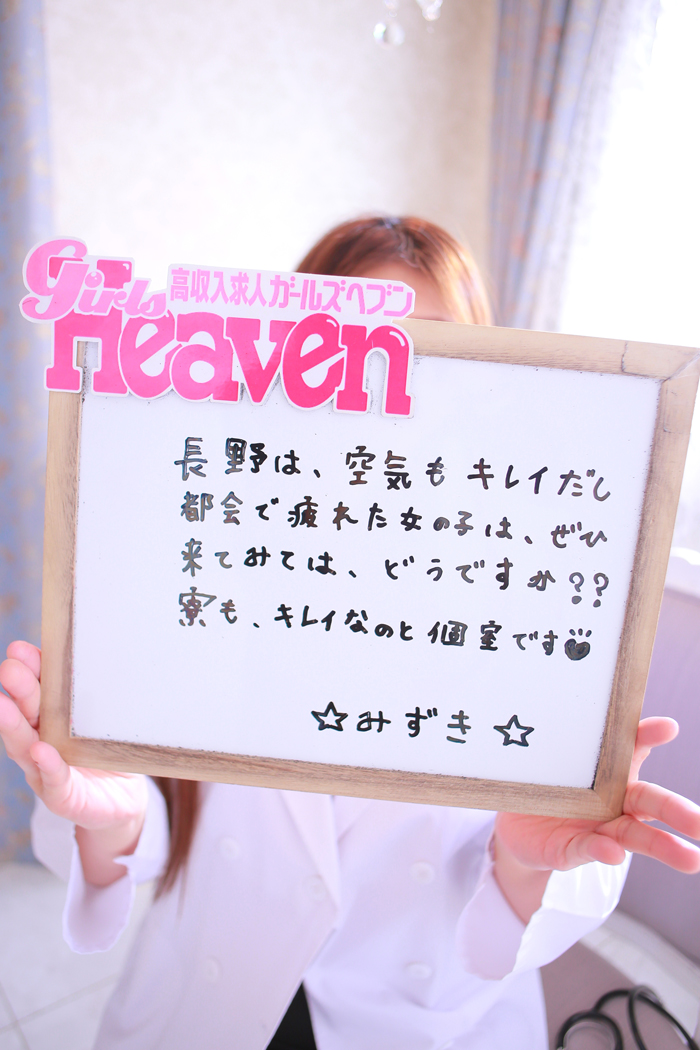 Girls
高収入求人ガールズヘブン
Heaven
長野は、空気もキレイだし
都会で疲れた女の子は、ぜひ
来てみては、どうですか??
寮も、キレイなのと個室です♥
☆みずき☆